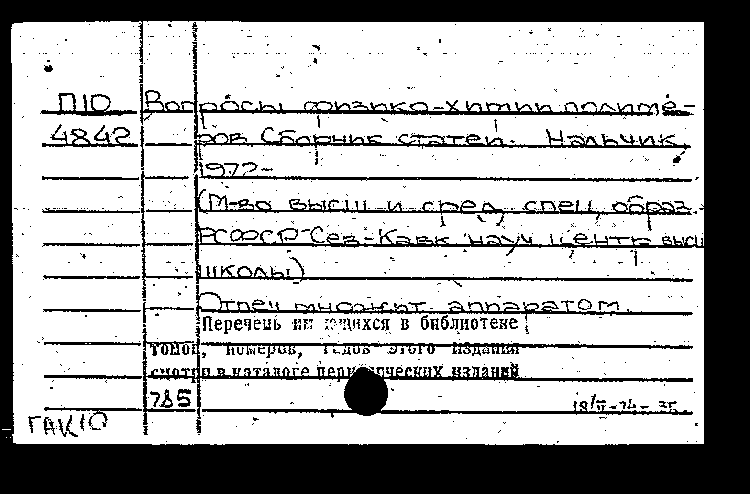 П10 Вопросы физико-химии полиме-
4842 ров. Сборник статей. Нальчик,
1972-
(М-во высш и сред. спец. образ.
РСФСР Сев-Кавк науч центр высш
школы)
Отпеч множит. аппаратом.
Перечень имеющихся в библиотеке
томов, номеров, годов этого издания
смотри в каталоге периодических изданий
785